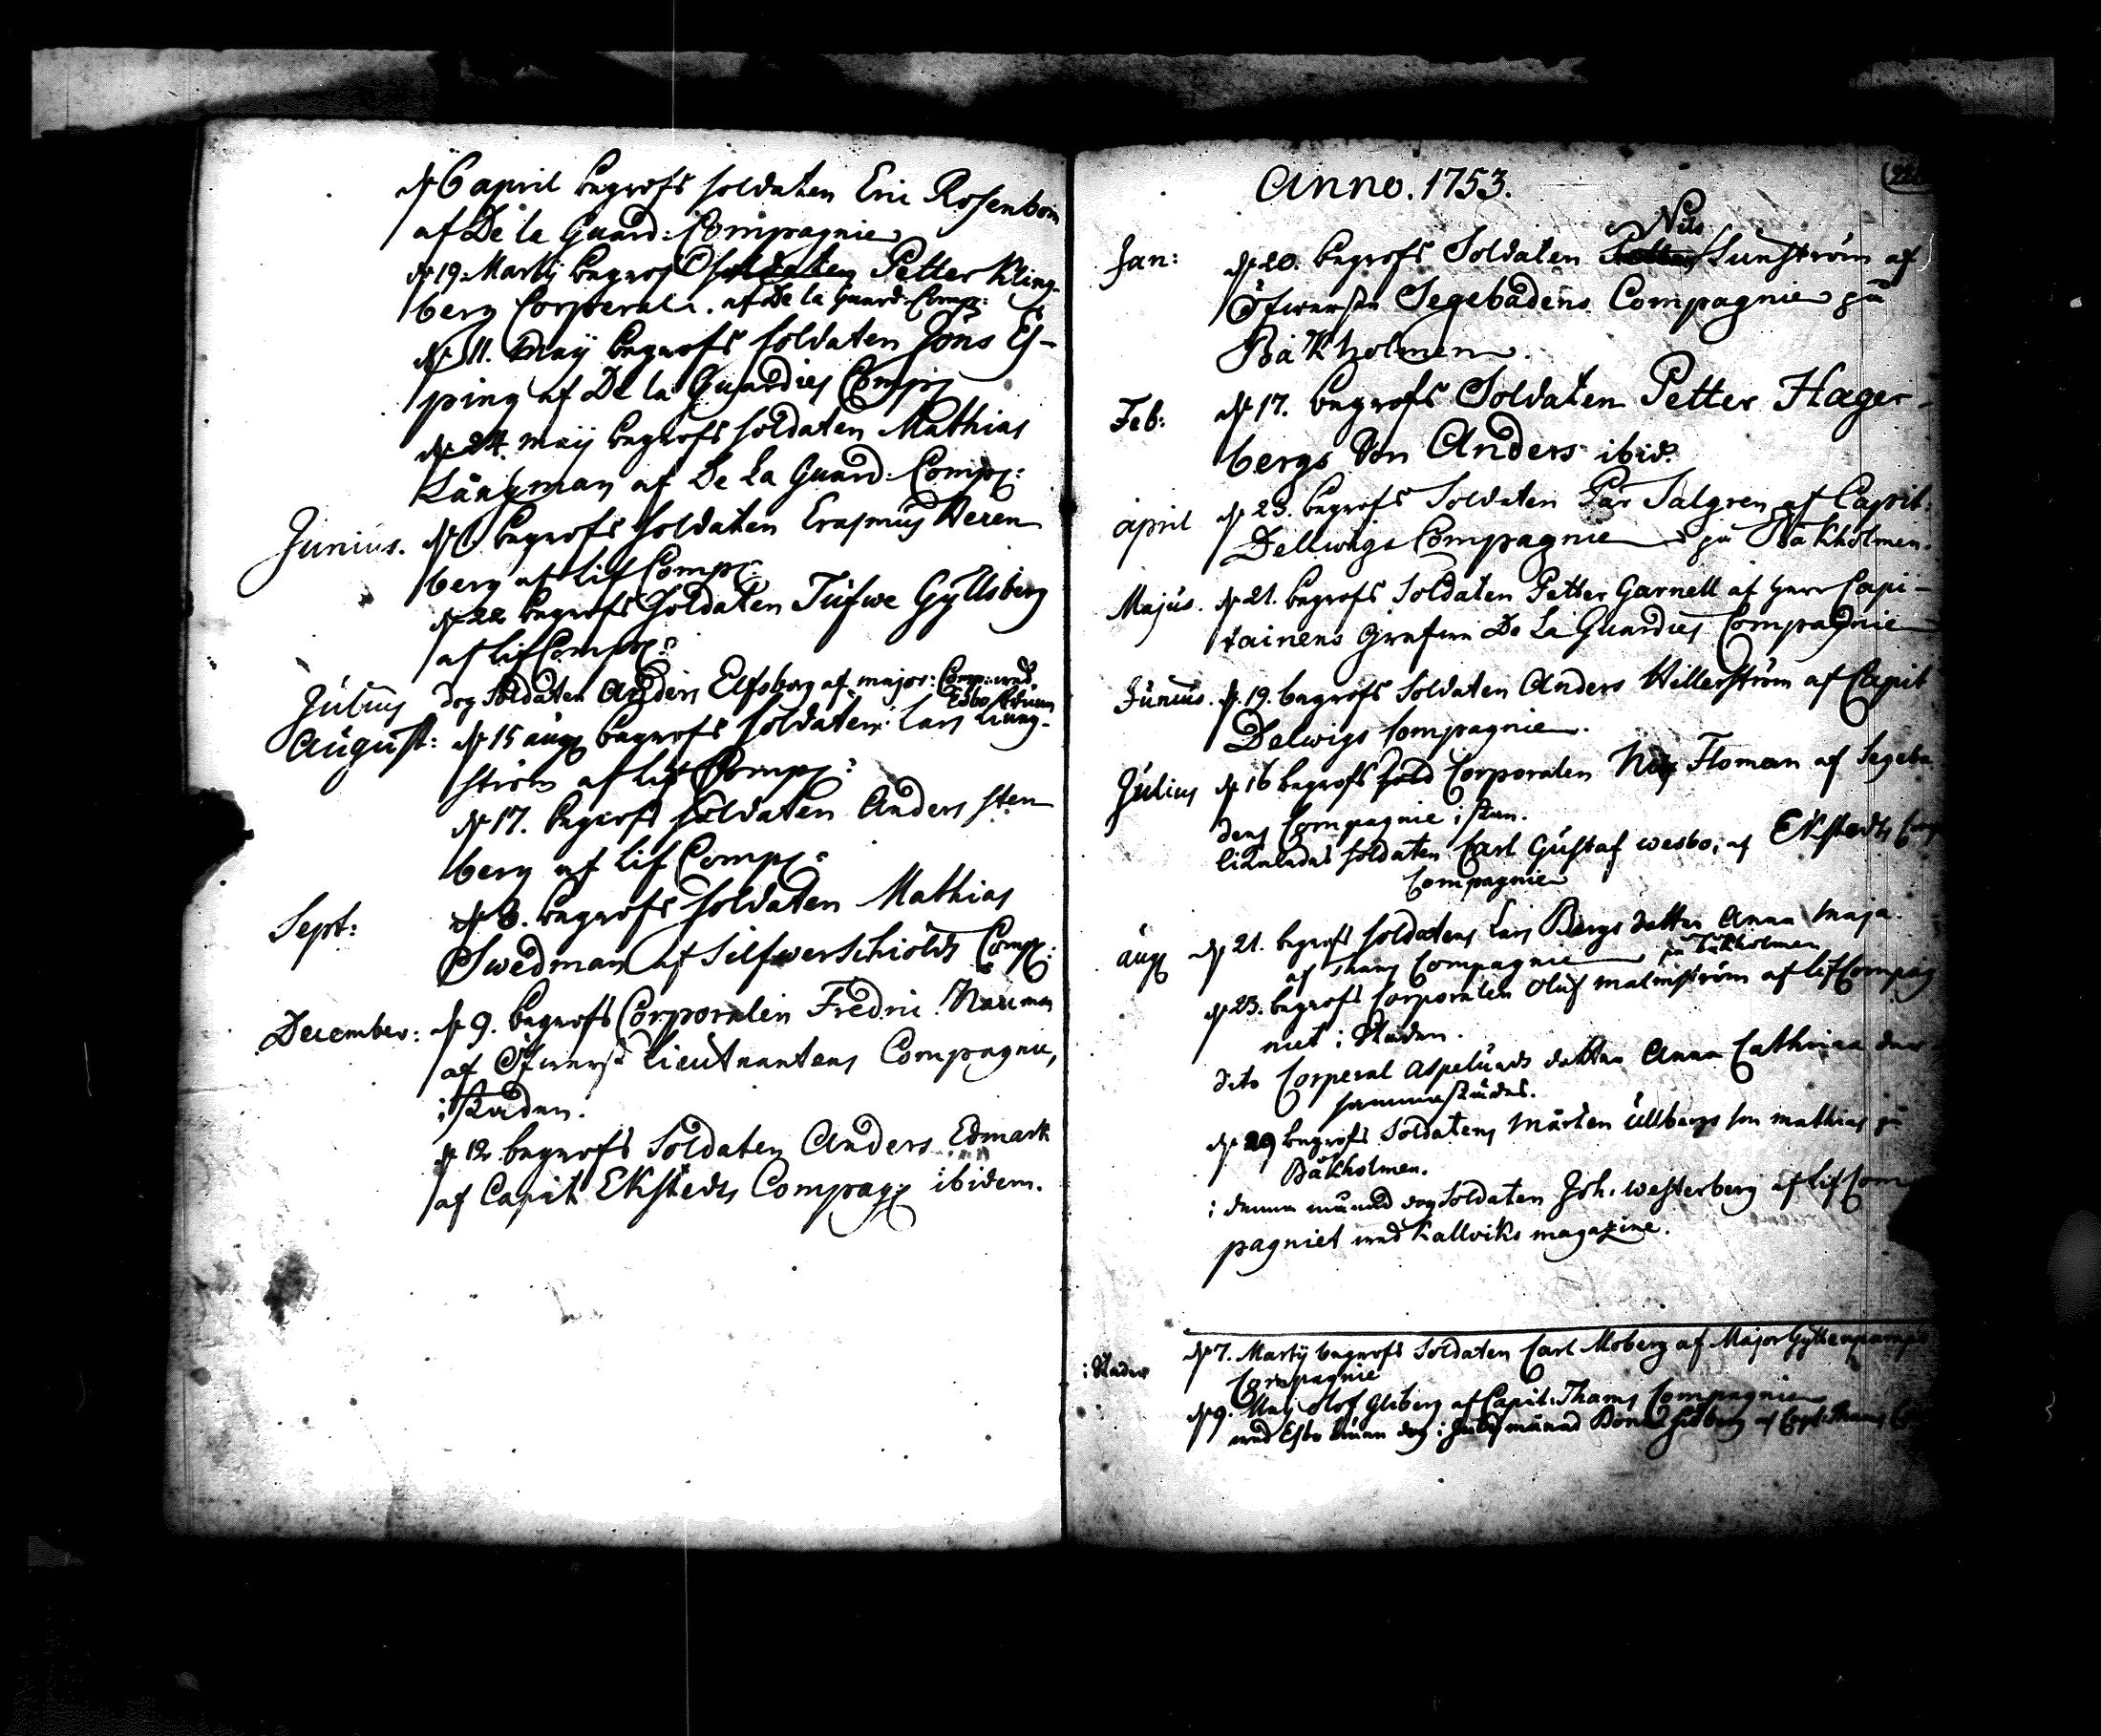 d. 6 april begrofs soldaten Eric Rosenbom
af De la Guard: Compagnie
d. 19. Martij begrofs Petter Kling-
berg Corporal. af De la Guard: Comp:
d. 11. Maij begrofs soldaten Jöns Es-
ping af De la Guardies Comp:
d. 24. maij begrofs soldaten Mathias
af De La Guard: Comp:
Junius. d. 1. begrofs soldaten Erasmus Weren
berg af lif Comp:
d. 22 begrofs Soldaten Tufwe Gyllsberg
af lif Comp:
Julius dog Soldaten Anders Elfsberg af major: Comp: wed
Esbo
August: d. 15 aug begrofs Soldaten Lars Liung-
ström af lif Comp:
d. 17. begrofs soldaten Anders sten
berg af lif Comp:
Sept: d. 8. begrofs soldaten Mathias
Swedman af Silfwerschiölds Comp:
December: d. 9. begrofs Corporalen Fredric Nauman
af Öfwerst Lieutnantens Compagnie,
i staden.
d. 12. begrofs Soldaten Anders Edmark
af Capit Ekstedts Compag: ibidem.
Anno. 1753.
Nils
Jan: d. 20. begrofs Soldaten Petter Sunström af
Öfwersten Segebadens Compagnie på
Båkholmen.
Feb: d. 17. begrofs Soldaten Petter Hager-
bergs Son Anders ibid.
april d. 23. begrofs Soldaten Pär Salgren af Capit:
Dellwigs Compagnie på Båkholmen.
Majus. d. 21. begrofs Soldaten Petter Garnell af herr Capi-
tainens Grefwe De La Guardies Compagnie
Junius. d. 19. begrofs Soldaten Anders Willerström af Capit
Delwigs Compagnie.
Julius d. 16 begrofs Corporalen Nils Floman af Segeba
dens Compagnie i stan.
likaledes soldaten Carl Gustaf wesbo, af Ekstedts
Compagnie
aug d. 21. begrofs soldatens Lars Bergs dotter Anna Maja.
af Thams Compagnie på Båkholmen
d. 23. begrofs Corporalen Oluf malmström af lif Compag
niet i Staden.
dito Corperal Aspelunds dotter Anna Cathrina der
sammastädes.
d. 29 begrofs Soldatens Mårten Ullbergs son mathias på
Båkholmen.
i denna månad dog Soldaten Joh. westerberg af lif Com
pagniet wed Kallviks magazine.
i Staden d. 7. Martij begrofs Soldaten Carl Moberg af Major Gyllenpamps
Compagnie
d. 9. Maij Olof Gliberg af Capit: Thams Compagnie
wed Esbo dog i Julij månad af Capt: Thams